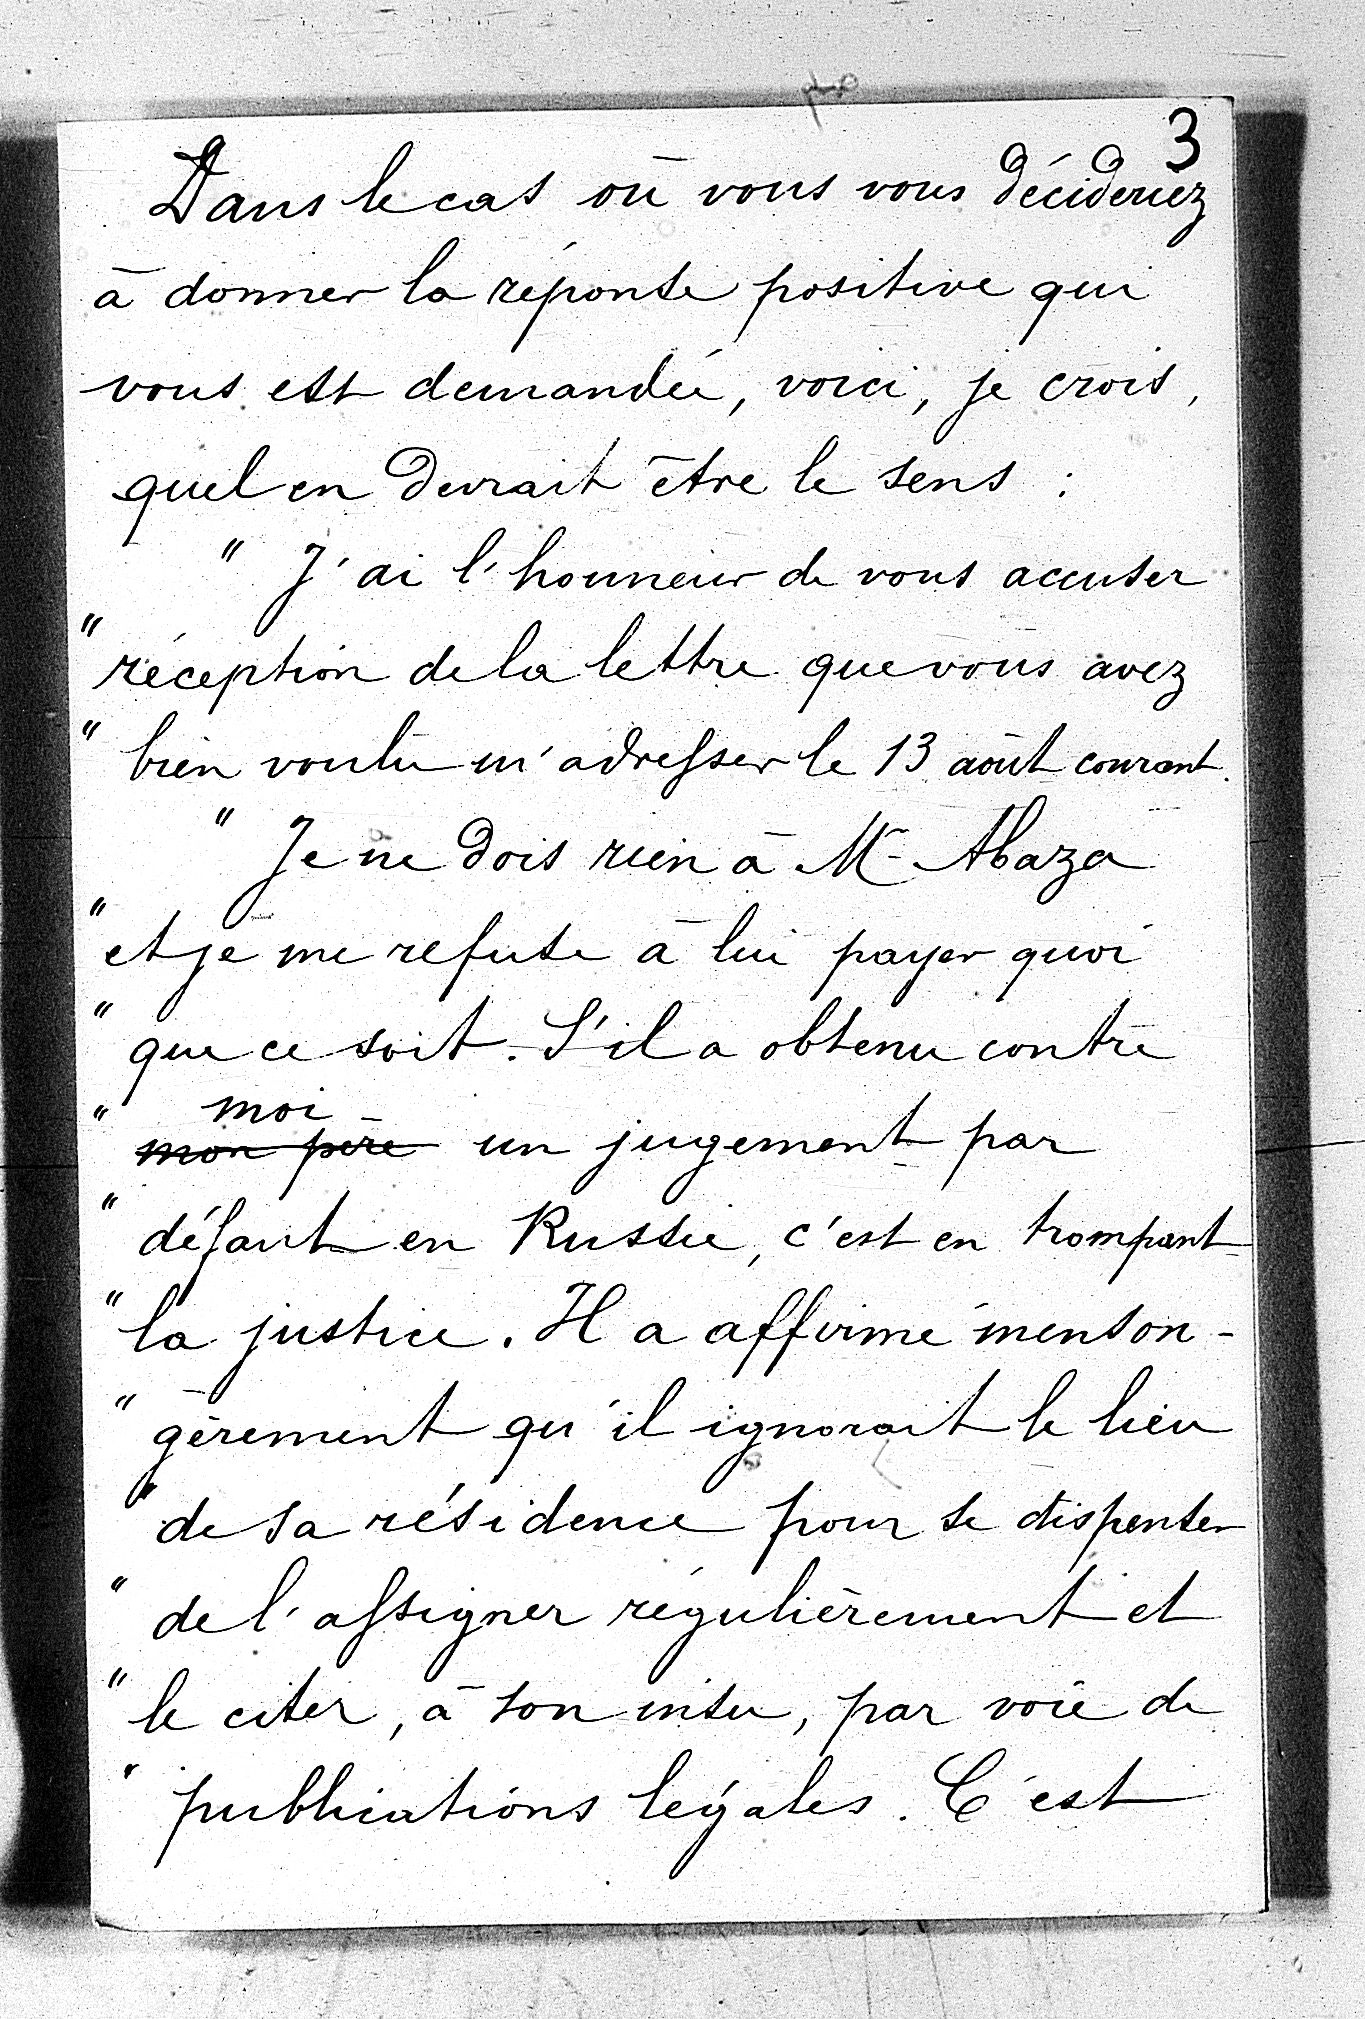 3
Dans le cas où vous vous décideriez
à donner la réponse positive qui
vous est demandée, voici, je crois,
quel en devrait être le sens :
" J'ai l'honneur de vous accuser
" réception de la lettre que vous avez
" bien voulu m'adresser le 13 août courant.
" Je ne dois rien à Mr Abaza
" et je me refuse à lui payer quoi
" que ce soit. S'il a obtenu contre
" moi
mon père un jugement par
" défaut en Russie, c'est en trompant
" la justice. Il a affirmé menson-
" gèrement qu'il ignorait le lieu
" de sa résidence pour se dispenser
" de l'assigner régulièrement et
" le citer, à son insu, par voie de
" publications légales. C'est